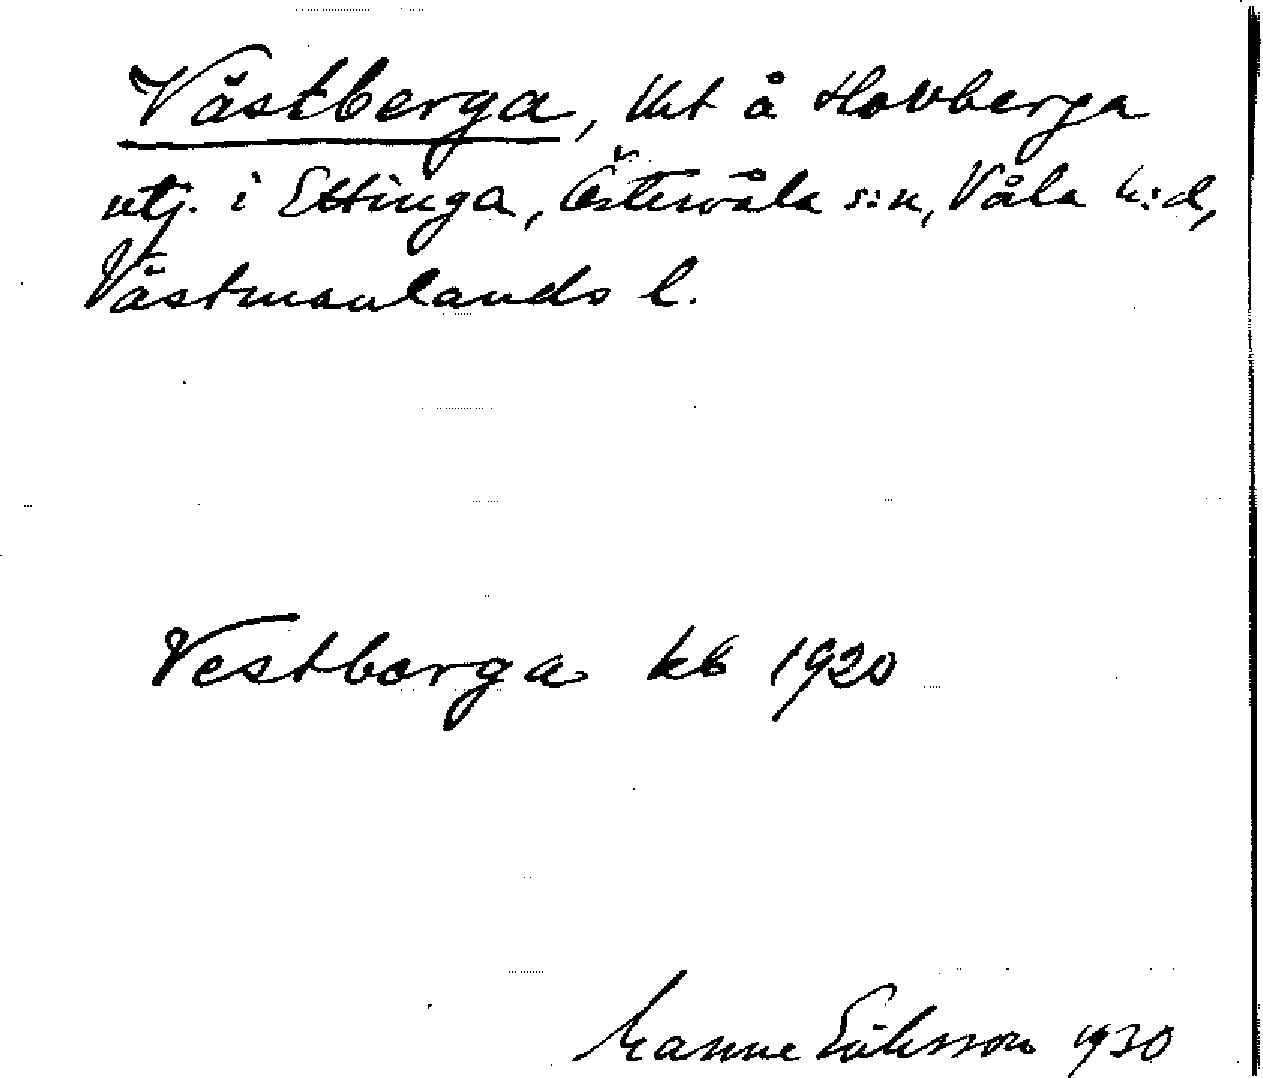 Västberga, lht å Hovberga
utj. i Ettinga, Östervåla s:n, Våla h:d,
Västmanlands l.
Vestberga kb 1920
Manne Eriksson 1930